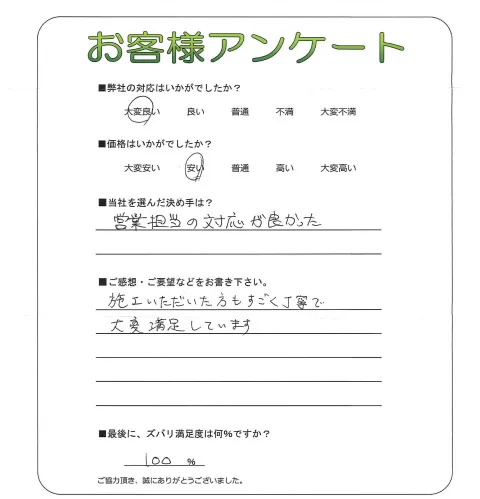 お客様アンケート
■弊社の対応はいかがでしたか？
大変良い 良い 普通 不満 大変不満
■価格はいかがでしたか？
大変安い 安い 普通 高い 大変高い
■当社を選んだ決め手は？
営業担当の対応が良かった
■ご感想・ご要望などをお書き下さい。
施工いただいた方もすごく丁寧で
大変満足しています
■最後に、ズバリ満足度は何%ですか？
100 %
ご協力頂き、誠にありがとうございました。